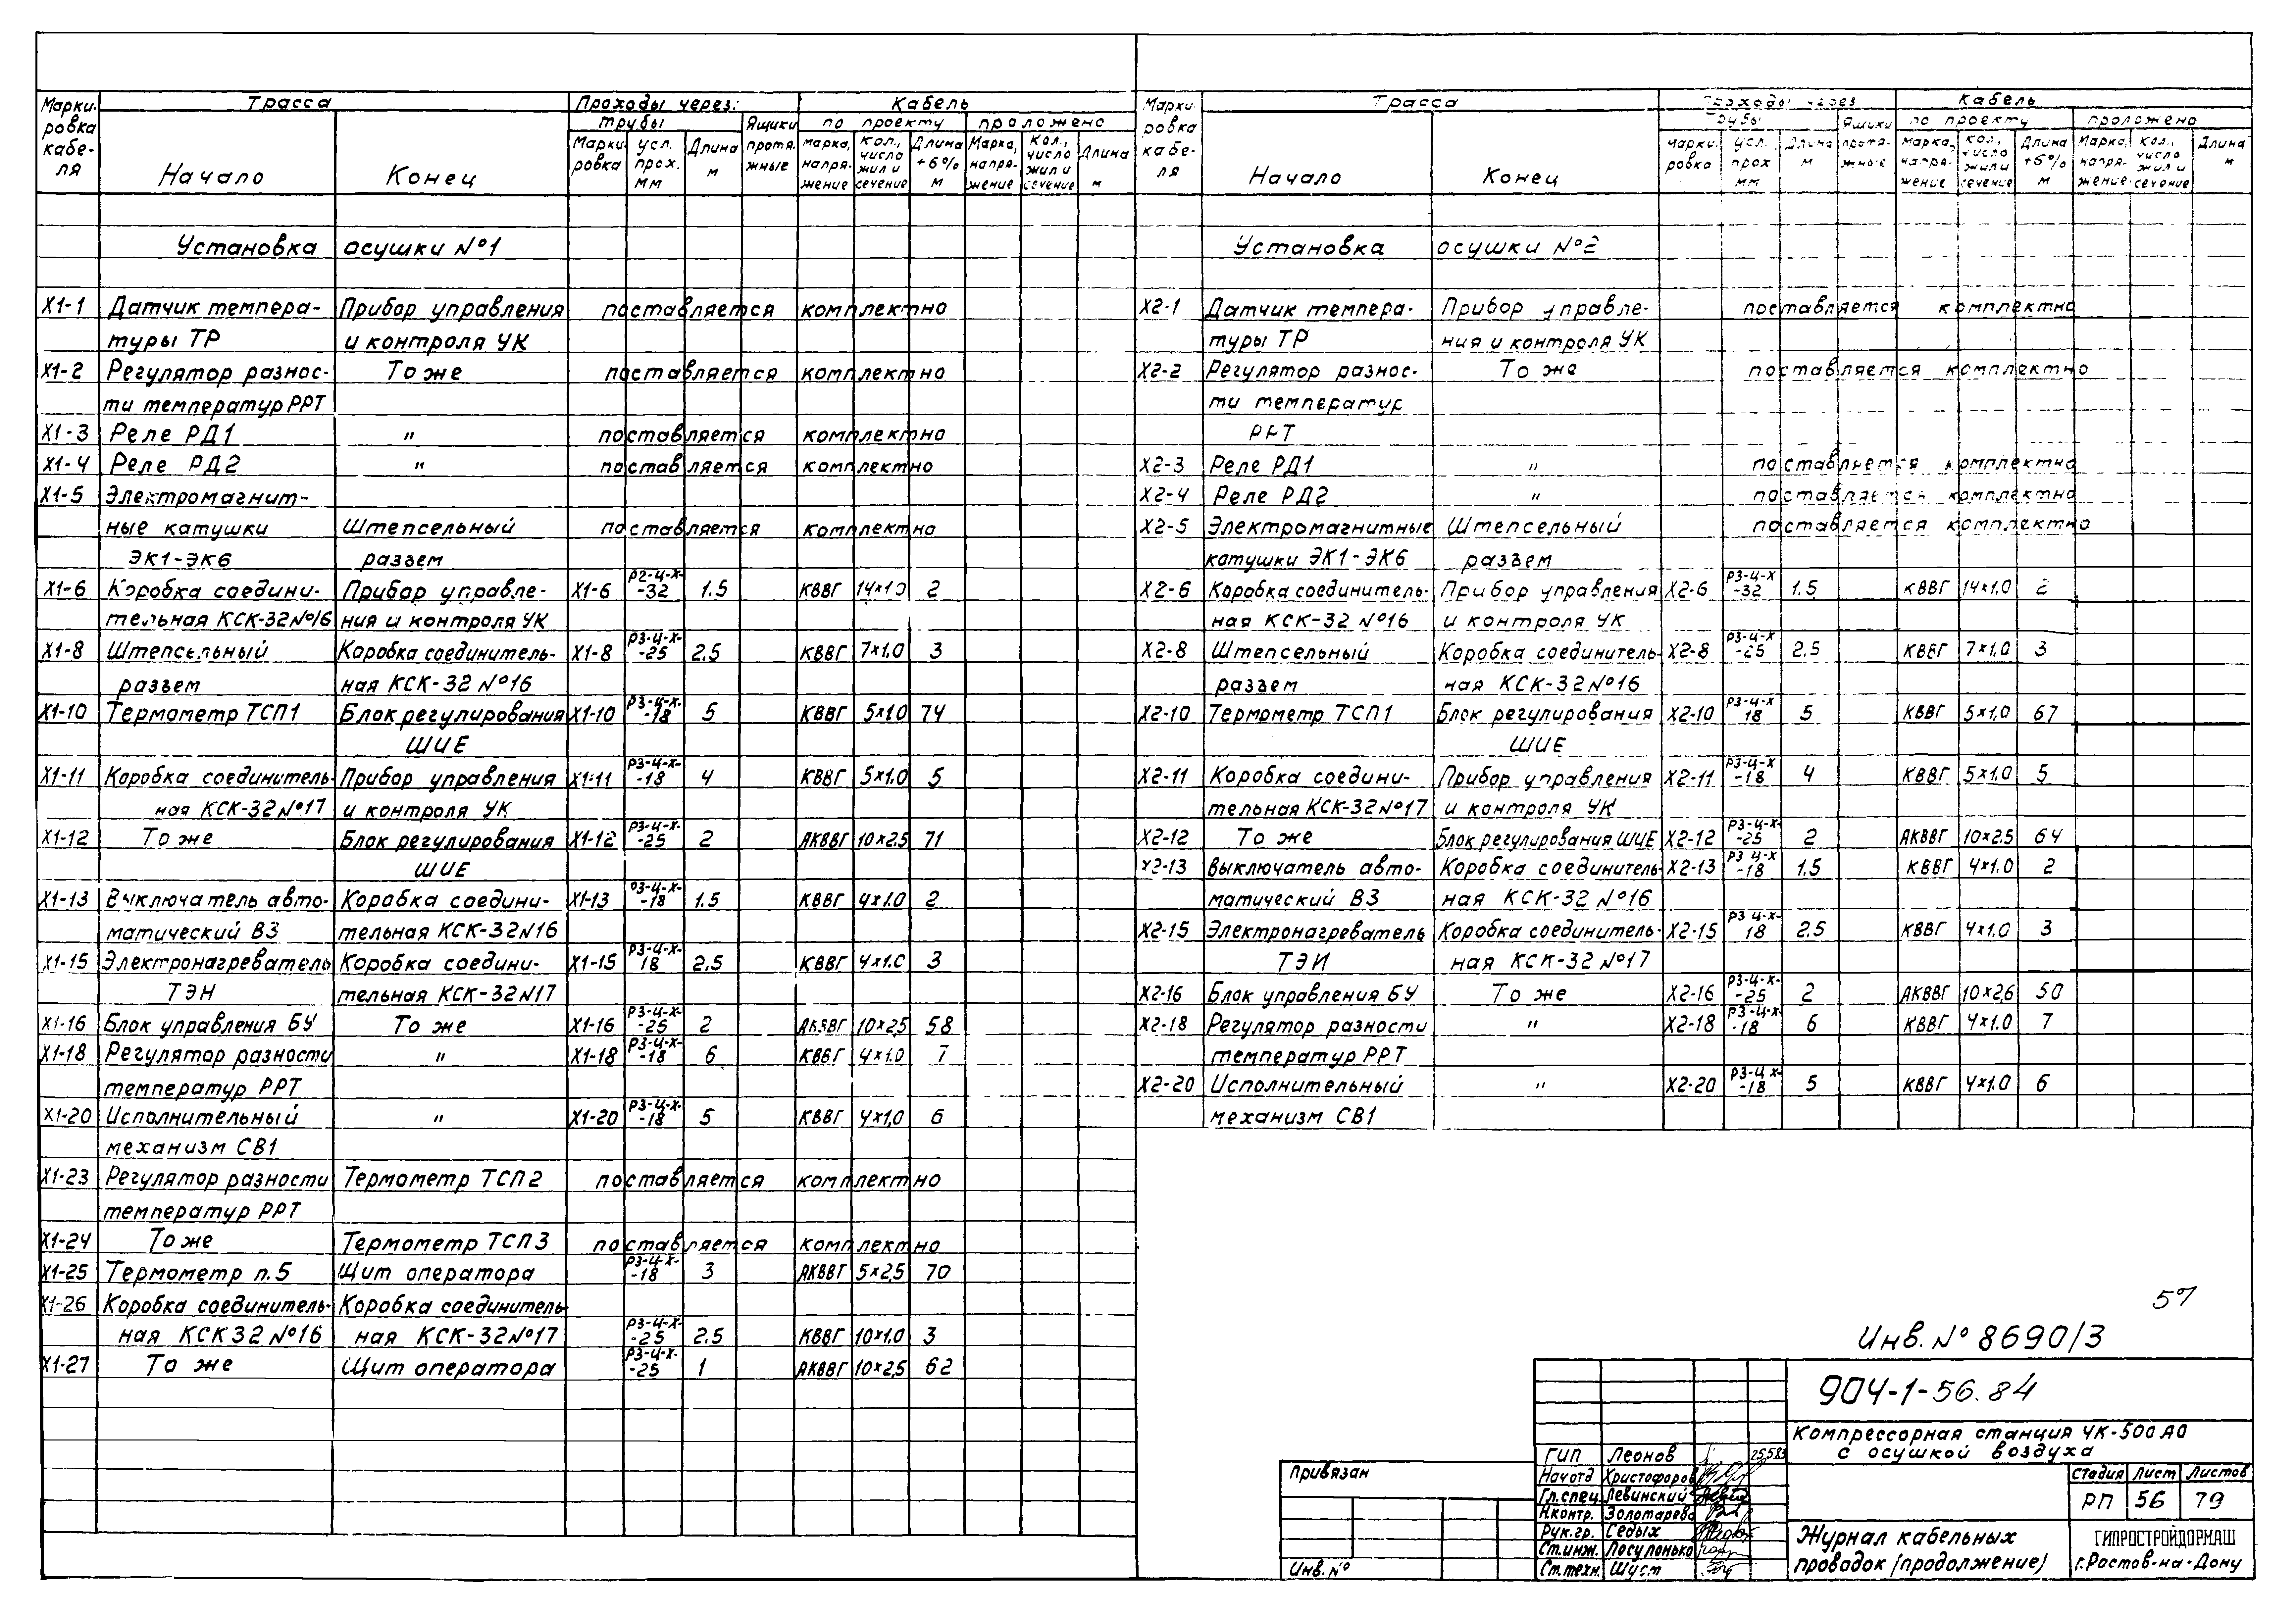 Марки-ровка кабе-ля | Трасса | Проходы через: | Кабель
трубы | Ящики протя-жные | по проекту | проложено
Начало | Конец | Марки-ровка | усл. прох. мм | Длина м | Марка, напря-жение | Кол., число жил и сечение | Длина +6% м | Марка, напря-жение | Кол., число жил и сечение | Длина м
Установка осушки №1
Х1-1 Датчик темпера- Прибор управления поставляется комплектно
туры ТР и контроля УК
Х1-2 Регулятор разнос- То же поставляется комплектно
ти температур РРТ
Х1-3 Реле РД1 " поставляется комплектно
Х1-4 Реле РД2 " поставляется комплектно
Х1-5 Электромагнит-
ные катушки Штепсельный поставляется комплектно
ЭК1-ЭК6 разъем
Х1-6 Коробка соедини- Прибор управле- Х1-6 Р2-Ц-Х-32 1.5 КВВГ 14×1.0 2
тельная КСК-32 №16 ния и контроля УК
Х1-8 Штепсельный Коробка соединитель- Х1-8 Р3-Ц-Х-25 2.5 КВВГ 7×1.0 3
разъем ная КСК-32 №16
Х1-10 Термометр ТСП1 Блок регулирования Х1-10 Р3-Ц-Х-18 5 КВВГ 5×1.0 74
ШИЕ
Х1-11 Коробка соединитель- Прибор управления Х1-11 Р3-Ц-Х-18 4 КВВГ 5×1.0 5
ная КСК-32 №17 и контроля УК
Х1-12 То же Блок регулирования Х1-12 Р3-Ц-Х-25 2 АКВВГ 10×2.5 71
ШИЕ
Х1-13 Выключатель авто- Коробка соедини- Х1-13 Р3-Ц-Х-18 1.5 КВВГ 4×1.0 2
матический В3 тельная КСК-32 N16
Х1-15 Электронагреватель Коробка соедини- Х1-15 Р3-Ц-Х-18 2.5 КВВГ 4×1.0 3
ТЭН тельная КСК-32 N17
Х1-16 Блок управления БУ То же Х1-16 Р3-Ц-Х-25 2 АКВВГ 10×2.5 58
Х1-18 Регулятор разности " Х1-18 Р3-Ц-Х-18 6 КВВГ 4×1.0 7
температур РРТ
Х1-20 Исполнительный " Х1-20 Р3-Ц-Х-18 5 КВВГ 4×1,0 6
механизм СВ1
Х1-23 Регулятор разности Термометр ТСП2 поставляется комплектно
температур РРТ
Х1-24 То же Термометр ТСП3 поставляется комплектно
Х1-25 Термометр п.5 Щит оператора Р3-Ц-Х-18 3 АКВВГ 5×2,5 70
Х1-26 Коробка соединитель- Коробка соединитель-
ная КСК 32 №16 ная КСК-32 №17 Р3-Ц-Х-25 2.5 КВВГ 10×1.0 3
Х1-27 То же Щит оператора Р3-Ц-Х-25 1 АКВВГ 10×2,5 62
Марки-ровка кабе-ля | Трасса | Проходы через: | Кабель
Трубы | Ящики протя-жные | по проекту | проложено
Начало | Конец | марки-ровка | усл. прох мм | Длина м | марка, напря-жение | кол., число жил и сечение | Длина +6% м | Марка, напря-жение | кол., число жил и сечение | Длина м
Установка осушки №2
Х2-1 Датчик темпера- Прибор управле- поставляется комплектно
туры ТР ния и контроля УК
Х2-2 Регулятор разнос- То же поставляется комплектно
ти температур
РРТ
Х2-3 Реле РД1 " поставляется комплектно
Х2-4 Реле РД2 " поставляется комплектно
Х2-5 Электромагнитные Штепсельный поставляется комплектно
катушки ЭК1-ЭК6 разъем
Х2-6 Коробка соединитель- Прибор управления Х2-6 Р3-Ц-Х-32 1.5 КВВГ 14×1.0 2
ная КСК-32 №16 и контроля УК
Х2-8 Штепсельный Коробка соединитель- Х2-8 Р3-Ц-Х-25 2.5 КВВГ 7×1.0 3
разъем ная КСК-32 №16
Х2-10 Термометр ТСП1 Блок регулирования Х2-10 Р3-Ц-Х 18 5 КВВГ 5×1,0 67
ШИЕ
Х2-11 Коробка соедини- Прибор управления Х2-11 Р3-Ц-Х-18 4 КВВГ 5×1.0 5
тельная КСК-32 №17 и контроля УК
Х2-12 То же Блок регулирования ШИЕ Х2-12 Р3-Ц-Х-25 2 АКВВГ 10×2.5 64
Х2-13 Выключатель авто- Коробка соединитель- Х2-13 Р3 Ц-Х-18 1.5 КВВГ 4×1.0 2
матический В3 ная КСК-32 №16
Х2-15 Электронагреватель Коробка соединитель- Х2-15 Р3 Ц-Х-18 2.5 КВВГ 4×1.0 3
ТЭИ ная КСК-32 №17
Х2-16 Блок управления БУ То же Х2-16 Р3-Ц-Х-25 2 АКВВГ 10×2,6 50
Х2-18 Регулятор разности " Х2-18 Р3-Ц-Х-18 6 КВВГ 4×1.0 7
температур РРТ
Х2-20 Исполнительный " Х2-20 Р3-Ц Х-18 5 КВВГ 4×1.0 6
механизм СВ1
57
Инв. № 8690/3
904-1-56.84
Компрессорная станция ЧК-500 А0
с осушкой воздуха
ГИП Леонов 25.5.83
Нач отд Христофоров
Гл.спец. Левинский
Н.контр. Золотарева
Рук.гр. Седых
Ст.инж. Посулонько
Ст.техн. Шуст
Привязан
Инв. №
Стадия Лист Листов
РП 56 79
Журнал кабельных
проводок (продолжение)
ГИПРОСТРОЙДОРМАШ
г.Ростов-на-Дону